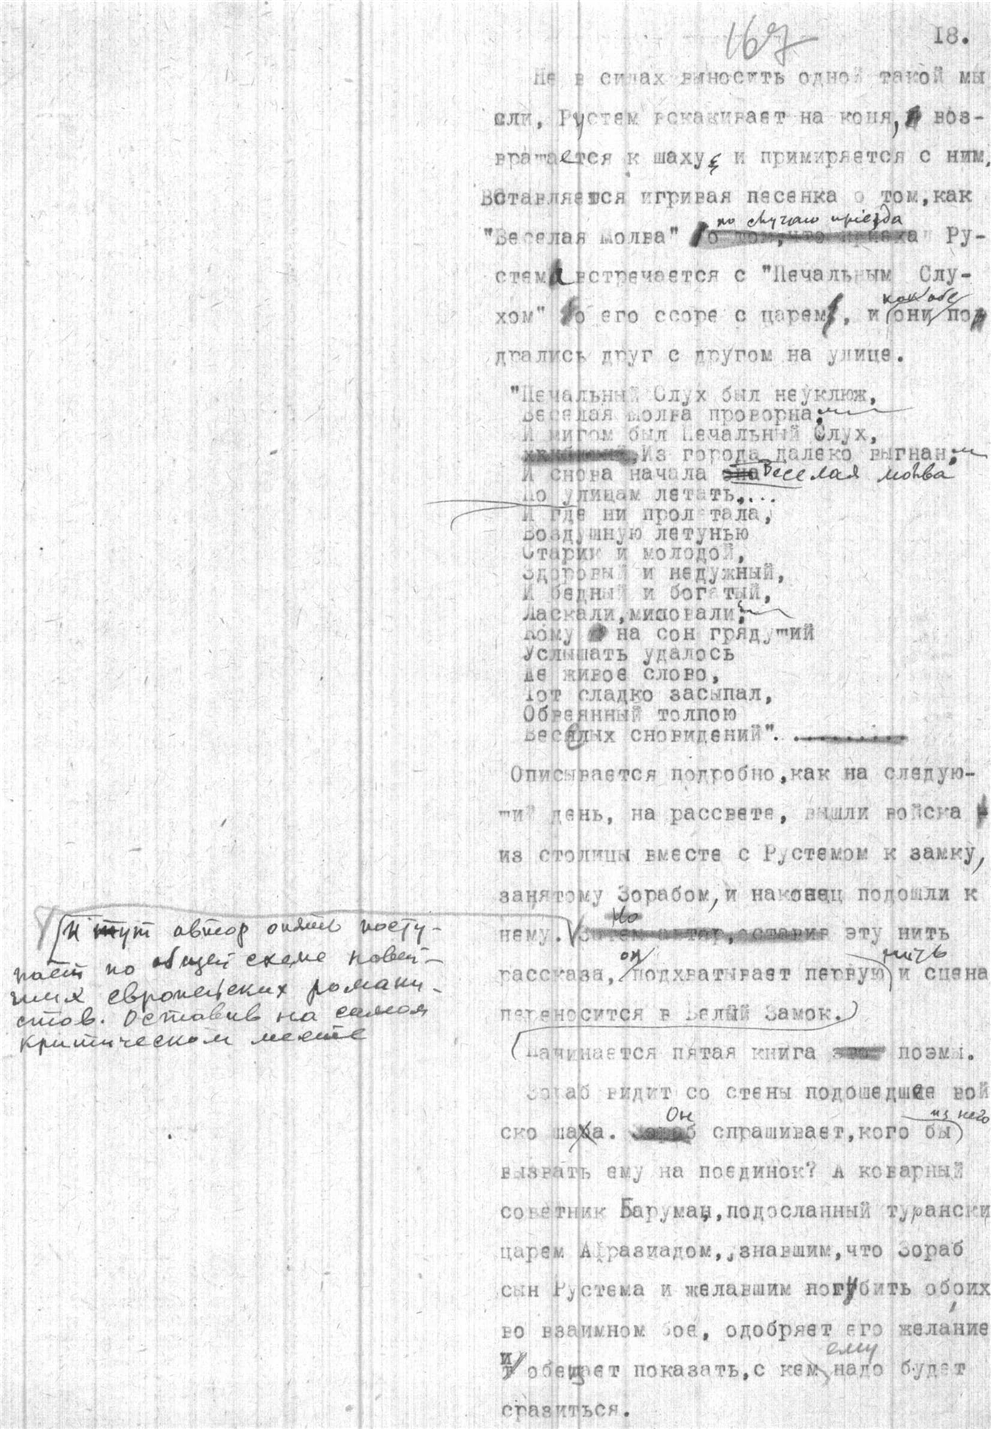 167
18.
Не в силах выносить одной такой мы
сли, Рустем вскакивает на коня, воз-
вращается к шаху, и примиряется с ним,
Вставляется игривая песенка о том, как
по случаю приезда
"Веселая Молва" о том, что приехал Ру-
стема встречается с "Печальным Слу-
как обе
хом" о его ссоре с царем, и они по
дрались друг с другом на улице.
"Печальный Слух был неуклюж,
Веселая Молва проворна;
И мигом был Печальный Слух,
Из города далеко выгнан;
И снова начала она Веселая молва
По улицам летать....
И где ни пролетала,
Воздушную летунью
Старик и молодой,
Здоровый и недужный,
И бедный и богатый,
Ласкали, миловали;
Кому на сон грядущий
Услышать удалось
Ее живое слово,
Тот сладко засыпал,
Обвеянный толпою
Веселых сновидений".
Описывается подробно, как на следую-
щий день, на рассвете, вышли войска
из столицы вместе с Рустемом к замку,
занятому Зорабом, и наконец подошли к
Но
нему. Затем автор, оставив эту нить
он нить
рассказа, подхватывает первую и сцена
переносится в Белый Замок.
И тут автор опять посту-
пает по общей схеме новей-
ших европейских романи-
стов. Оставив на самом
критическом месте
Начинается пятая книга поэмы.
Зораб видит со стены подошедшее вой
Он из него
ско шаха. Зораб спрашивает, кого бы
вызвать ему на поединок? А коварный
советник Баруман, подосланный турански
царем Афразиадом, знавшим, что Зораб
сын Рустема и желавшим погубить обоих
во взаимном бое, одобряет его желание
ему
и обещает показать, с кем надо будет
сразиться.